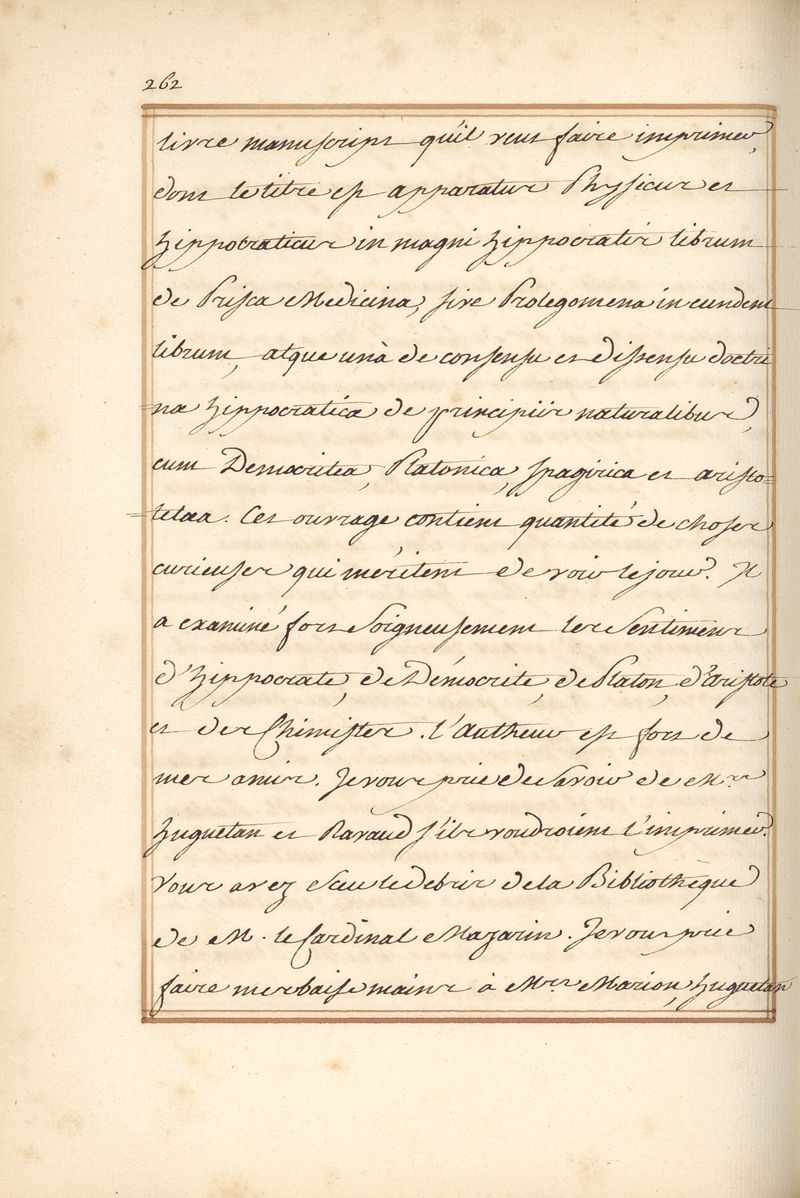 262
livre manuscript qu'il veut faire imprimer,
dont le titre est apparatus Physicus et
hippocraticus in magni hippocratis librum
de Prisca Medicina, sive Prolegomena in eundem
librum, atque unà de consensu et dissensu doctri
=na hippocratica de principiis naturalibus,
cum Democritea, Platonica, spagirica et aristo=
=telaea. Cet ouvrage contient quantité de choses
curieuses qui méritent de voir le jour. Il
a examiné fort Soigneusement les Sentimens
d'hippocrate, de Démocrite, de Platon, d'aristote
et des Chimistes. l'Autheur est fort de
mes amis. Je vous prie de Savoir de Mrs
huguetan et Ravaud s'ils voudroient l'imprimer.
Vous avez Sceu le debris de la Bibliothèque
de M. le Cardinal Mazarin. Je vous prie
faire mes baisemains à Mrs Marion, huguetan